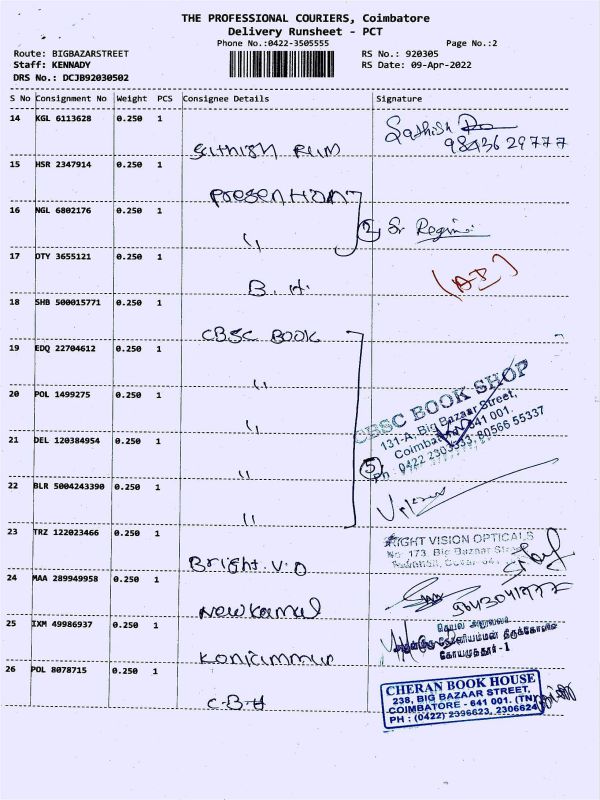 THE PROFESSIONAL COURIERS, Coimbatore
Delivery Runsheet - PCT
Phone No.:0422-3505555 Page No.:2
Route: BIGBAZARSTREET RS No.: 920305
Staff: KENNADY RS Date: 09-Apr-2022
DRS No.: DCJB92030502
S No Consignment No Weight PCS Consignee Details Signature
14 KGL 6113628 0.250 1
Sathish
9843629777
Sathish Ram
15 HSR 2347914 0.250 1
Presention
16 NGL 6802176 0.250 1
(2) Sr Regina
"
17 OTY 3655121 0.250 1
B. H.
18 SHB 500015771 0.250 1
CBSC BOOK
19 EDQ 22704612 0.250 1
"
20 POL 1499275 0.250 1
"
CBSC BOOK SHOP
131-A, Big Bazaar Street,
Coimbatore 641 001.
Ph : 0422 2303333, 80566 55337
21 DEL 120384954 0.250 1
(5)
"
22 BLR 5004243390 0.250 1
"
23 TRZ 122023466 0.250 1
RIGHT VISION OPTICALS
No: 173, Big Bazaar Street
Bright. V.O
24 MAA 289949958 0.250 1
New Kamal
25 IXM 49986937 0.250 1
கோயமுத்தூர் - 1
26 POL 8078715 0.250 1
C-B-H
CHERAN BOOK HOUSE
238, BIG BAZAAR STREET,
COIMBATORE - 641 001. (TN)
PH : (0422) 2396623, 2306624